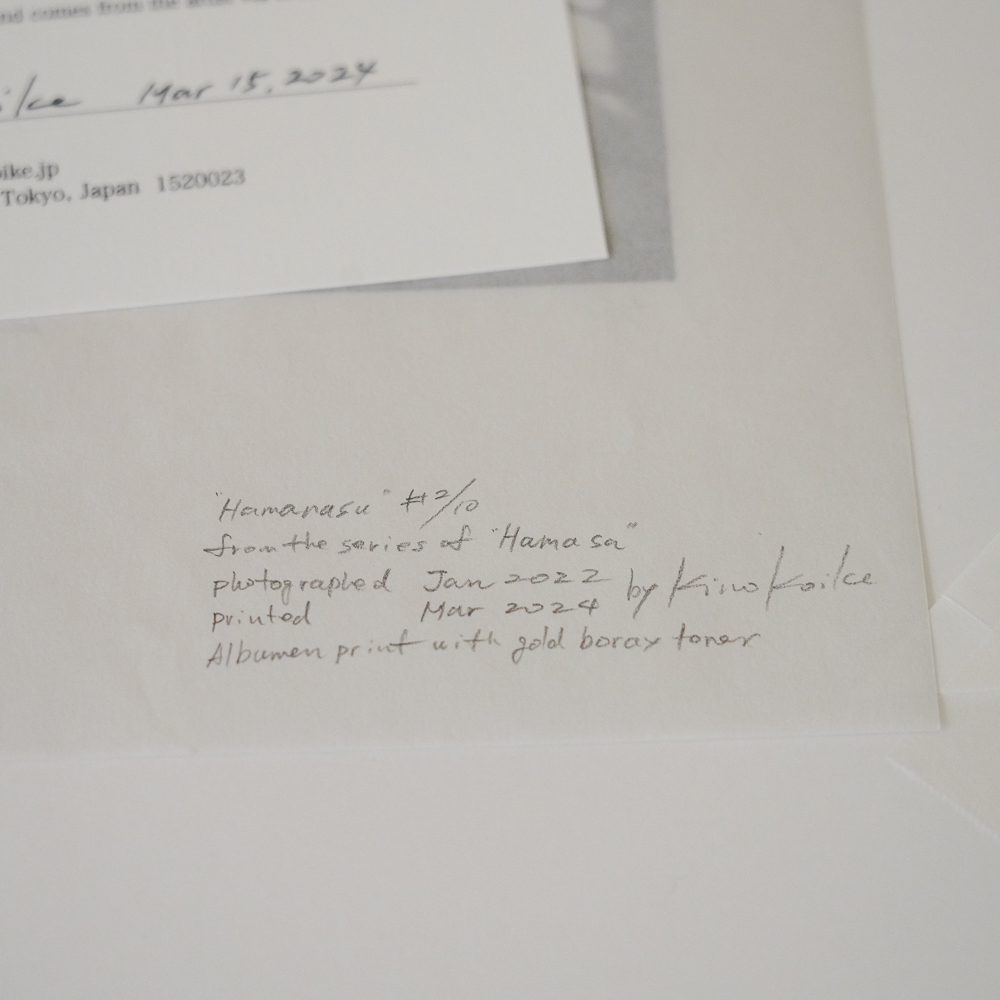 and comes from the
ike Mar 15, 2024
oike.jp
Tokyo, Japan 1520023
"Hamanasu" #2/10
from the series of "Hamasa"
photographed Jan 2022 by Kino Koike
printed Mar 2024
Albumen print with gold borax toner